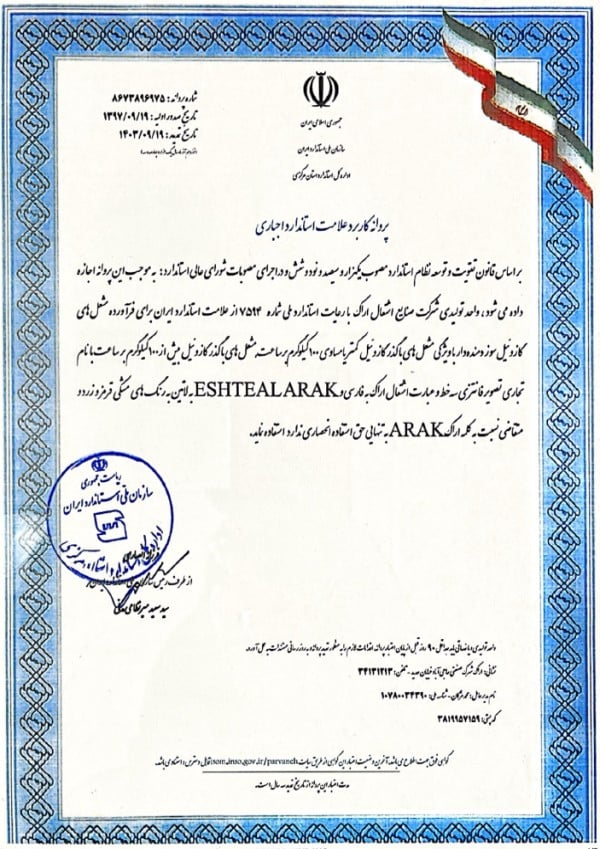 شماره پروانه: ۸۶۷۳۸۹۶۹۷۵
تاریخ صدور اولیه: ۱۳۹۷/۰۹/۱۹
تاریخ تمدید: ۱۴۰۳/۰۹/۱۹
جمهوری اسلامی ایران
سازمان ملی استاندارد ایران
اداره کل استاندارد استان مرکزی
پروانه کاربرد علامت استاندارد اجباری
بر اساس قانون تقویت و توسعه نظام استاندارد مصوب یکهزار و سیصد و نود و شش و در اجرای مصوبات شورای عالی استاندارد: به موجب این پروانه اجازه
داده می شود، واحد تولیدی شرکت صنایع اشتعال اراک با رعایت استاندارد ملی شماره ۷۵۹۴ از علامت استاندارد ایران برای فرآورده مشعل های
گازوئیل سوز دمنده دار با ویژگی مشعل های با گذر گازوئیل کمتر یا مساوی ۱۰۰ کیلوگرم بر ساعت, مشعل های با گذر گازوئیل بیش از ۱۰۰ کیلوگرم بر ساعت با نام
تجاری تصویر فانتزی سه خط و عبارت اشتعال اراک به فارسی و ESHTEAL ARAK به لاتین به رنگ های مشکی قرمز و زرد و
متقاضی نسبت به کلمه اراک ARAK به تنهایی حق استفاده انحصاری ندارد استفاده نماید.
ریاست جمهوری
سازمان ملی استاندارد ایران
اداره کل استاندارد استان مرکزی
از طرف رئیس سازمان ملی استاندارد ایران
سید سعید میرنظامی
واحد تولیدی و یا خدماتی باید حداقل ۹۰ روز قبل از پایان اعتبار پروانه اقدامات لازم را به منظور تمدید پروانه و به روز رسانی مستندات به عمل آورد.
نشانی: اراک شهرک صنعتی حاجی آباد خیابان حدید - تلفن: ۳۴۱۳۱۲۱۳
شناسه ملی: ۱۰۷۸۰۰۳۴۳۹۰
کد پستی: ۳۸۱۹۹۵۷۱۵۹
گواهی فوق جهت اطلاع می باشد, آخرین وضعیت اعتبار این گواهی از طریق سایت som.inso.gov.ir/parvaneh قابل دسترس و استنادی باشد.
مدت اعتبار این پروانه از تاریخ تمدید سه سال است.